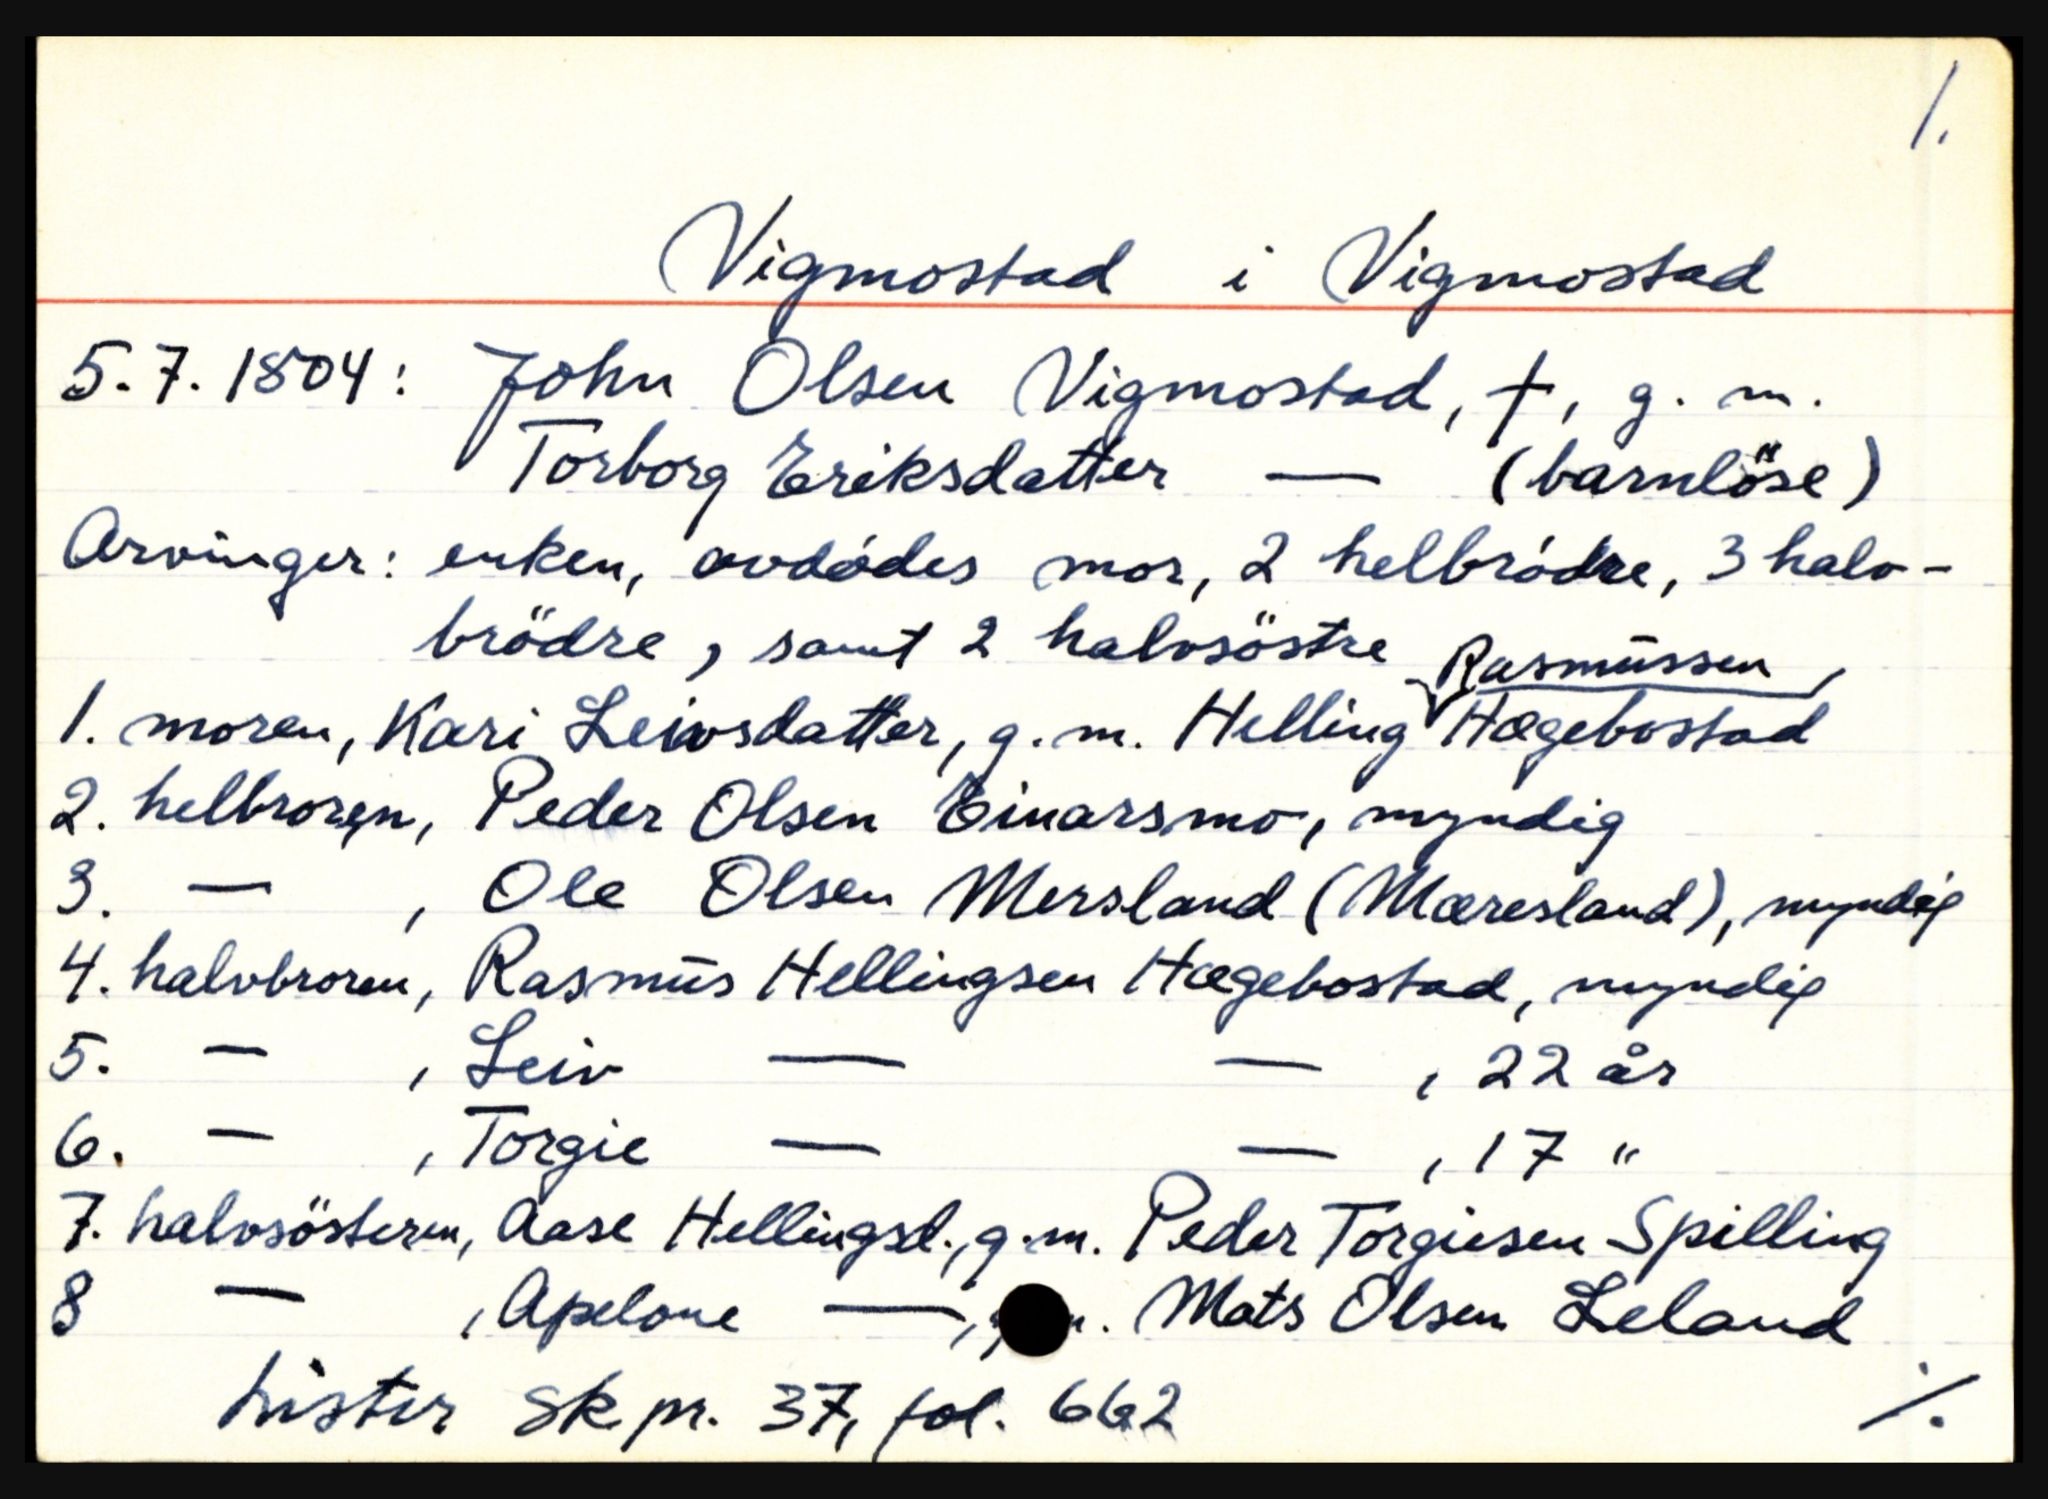 1.
Vigmostad i Vigmostad
5.7.1804: John Olsen Vigmostad, †, g. m.
Torborg Eriksdatter — (barnlöse)
Arvinger: enken, avdódes mor, 2 helbródre, 3 halv-
brödre, samt 2 halvsöstre
Rasmussen,
1. moren, Kari Leivsdatter, g. m. Helling Hægebostad
2. helbroren, Peder Olsen Einarsmo, myndig
3. — , Ole Olsen Mersland (Mæresland), myndig
4. halvbroren, Rasmus Hellingsen Hægebostad, myndig
5. — , Leiv — — , 22 år
6. — , Torgie — — , 17 "
7. halvsösteren, Aase Hellingsd., g. m. Peder Torgiesen Spilling
8 — , Apelone — , m. Mats Olsen Leland
Lister sk pr. 37, fol. 662
/.